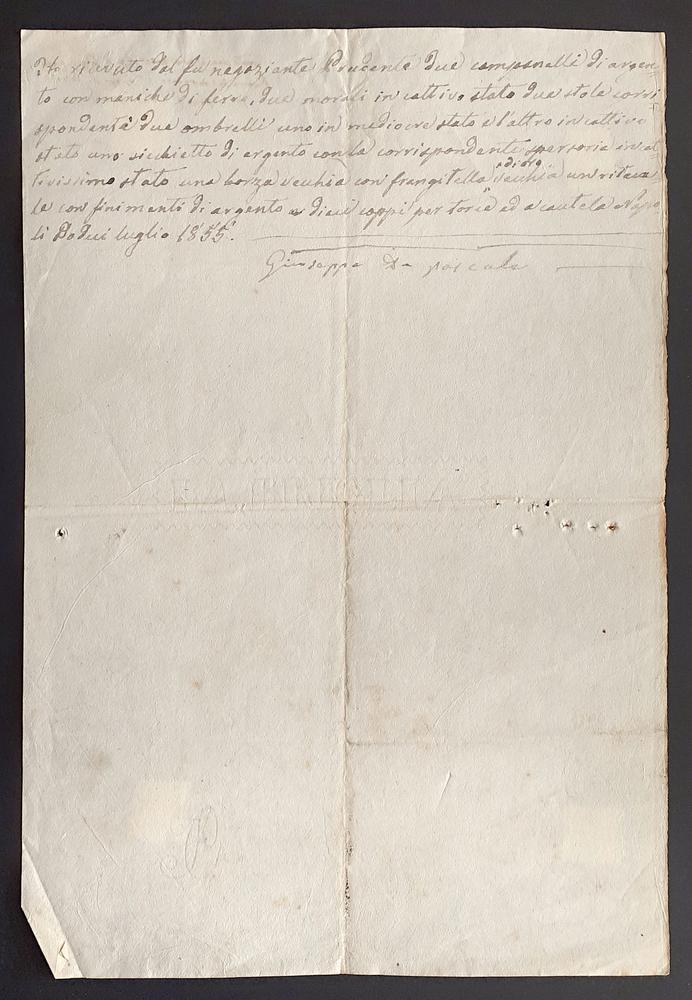 Ho ricevuto dal fu negoziante Prudente due campanelli di argen
to con maniche di ferro, due morali in cattivo stato due stole corri
spondenti due ombrelli uno in mediocre stato e l'altro in cattivo
stato uno sicchietto di argento con la corrispondente spersoria in cat
tivissimo stato una borza vecchia con frangitella di oro vecchia un ritua
le con finimenti di argento e dieci coppi per torcia ed a cautela Napo
li dodici luglio 1855.
Giuseppe De pascale